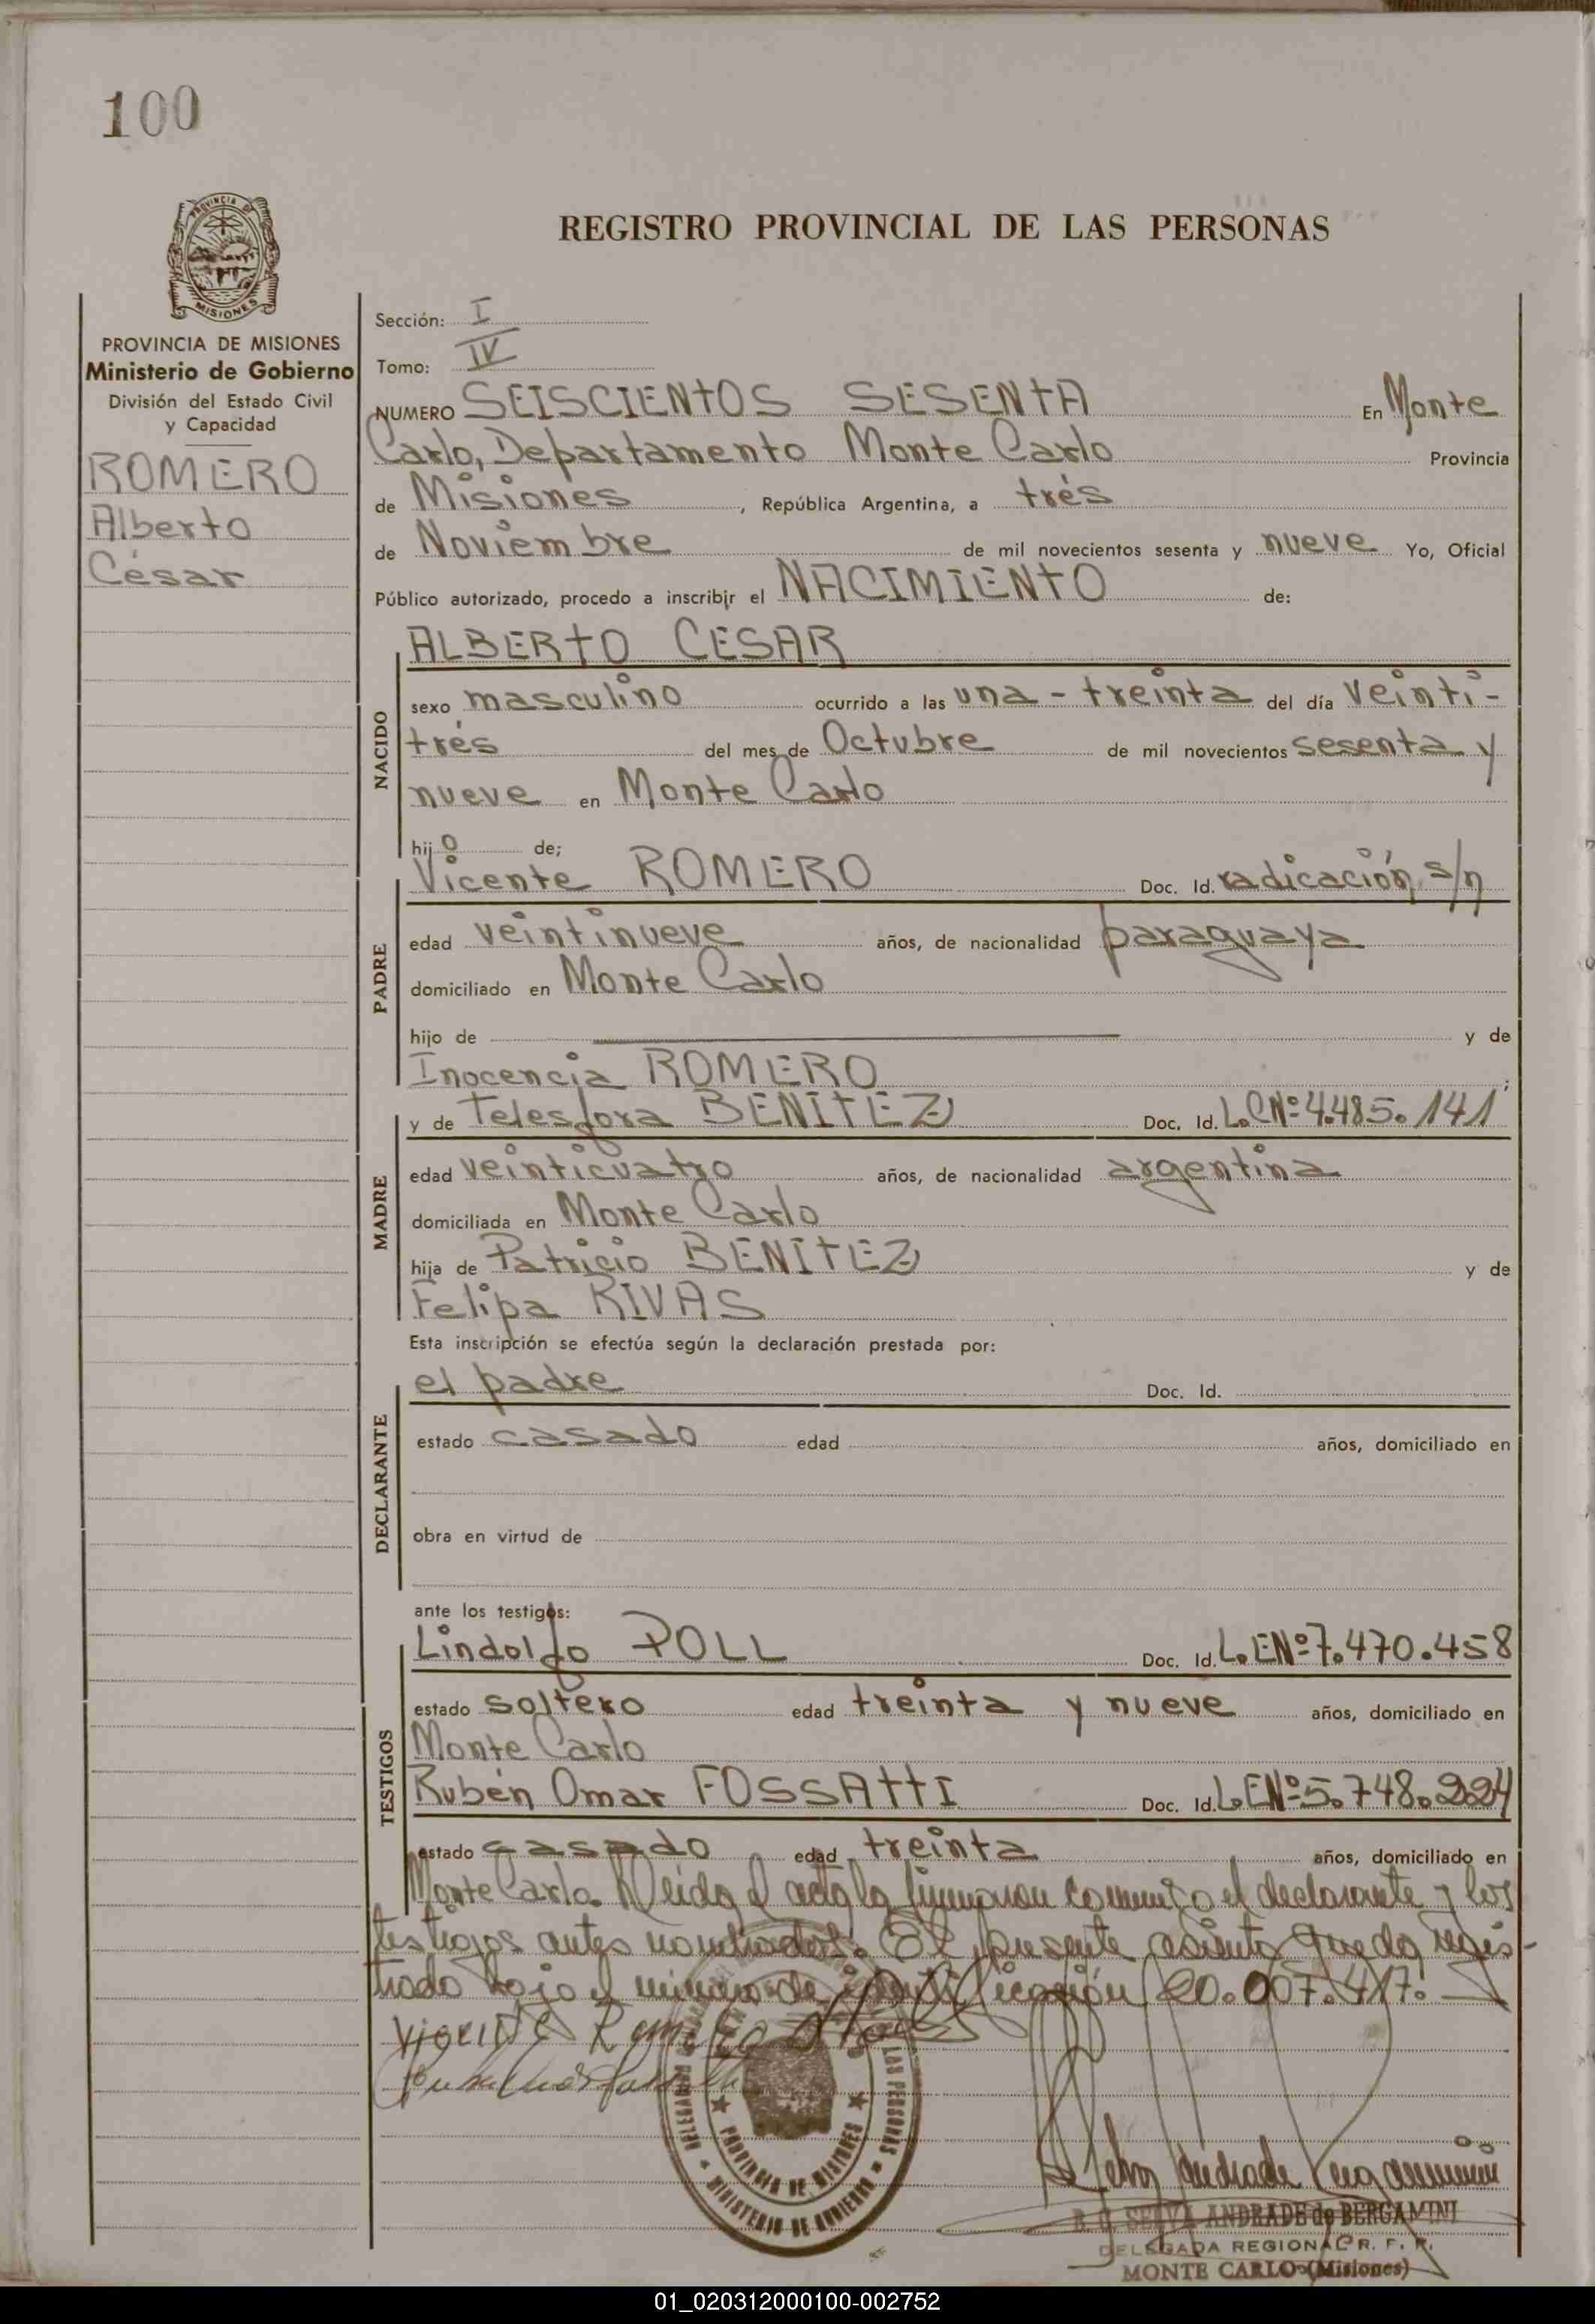 100
PROVINCIA DE
MISIONES
REGISTRO PROVINCIAL DE LAS PERSONAS
PROVINCIA DE MISIONES
Ministerio de Gobierno
División del Estado Civil
y Capacidad
ROMERO
Alberto
César
Sección: I
Tomo: IV
NUMERO SEISCIENTOS SESENTA En Monte
Carlo, Departamento Monte Carlo Provincia
de Misiones, República Argentina, a trés
de Noviembre de mil novecientos sesenta y nueve Yo, Oficial
Público autorizado, procedo a inscribir el NACIMIENTO de:
NACIDO
ALBERTO CESAR
sexo masculino ocurrido a las una - treinta del día veinti-
trés del mes de Octubre de mil novecientos sesenta y
nueve en Monte Carlo
hijo de;
PADRE
Vicente ROMERO Doc. Id. radicación, s/n
edad veintinueve años, de nacionalidad paraguaya
domiciliado en Monte Carlo
hijo de y de
Inocencia ROMERO ;
MADRE
y de Telesfora BENITEZ Doc. Id. L.C Nº 4.485.141
edad veinticuatro años, de nacionalidad argentina
domiciliada en Monte Carlo
hija de Patricio BENITEZ y de
Felipa RIVAS
Esta inscripción se efectúa según la declaración prestada por:
DECLARANTE
el padre Doc. Id.
estado casado edad años, domiciliado en
obra en virtud de
ante los testigos:
TESTIGOS
Lindolfo POLL Doc. Id. L.E Nº 7.470.458
estado soltero edad treinta y nueve años, domiciliado en
Monte Carlo
Rubén Omar FOSSATTI Doc. Id. L.E Nº 5.748.224
estado casado edad treinta años, domiciliado en
Monte Carlo. Leida el acta la firmaron conmigo el declarante y los
testigos antes nombrados. El presente asiento queda regis-
trado bajo el número de identificación 20.007.417.
MINISTERIO DE GOBIERNO
PROVINCIA DE MISIONES
LAS PERSONAS
B. O. SELVA ANDRADE de BERGAMINI
DELEGADA REGIONAL R. P. P.
MONTE CARLO (Misiones)
01_020312000100-002752